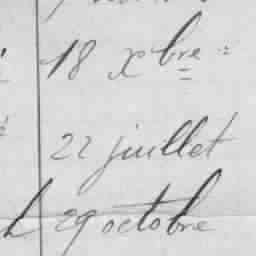 18 Xbre =
22 juillet
29 octobre